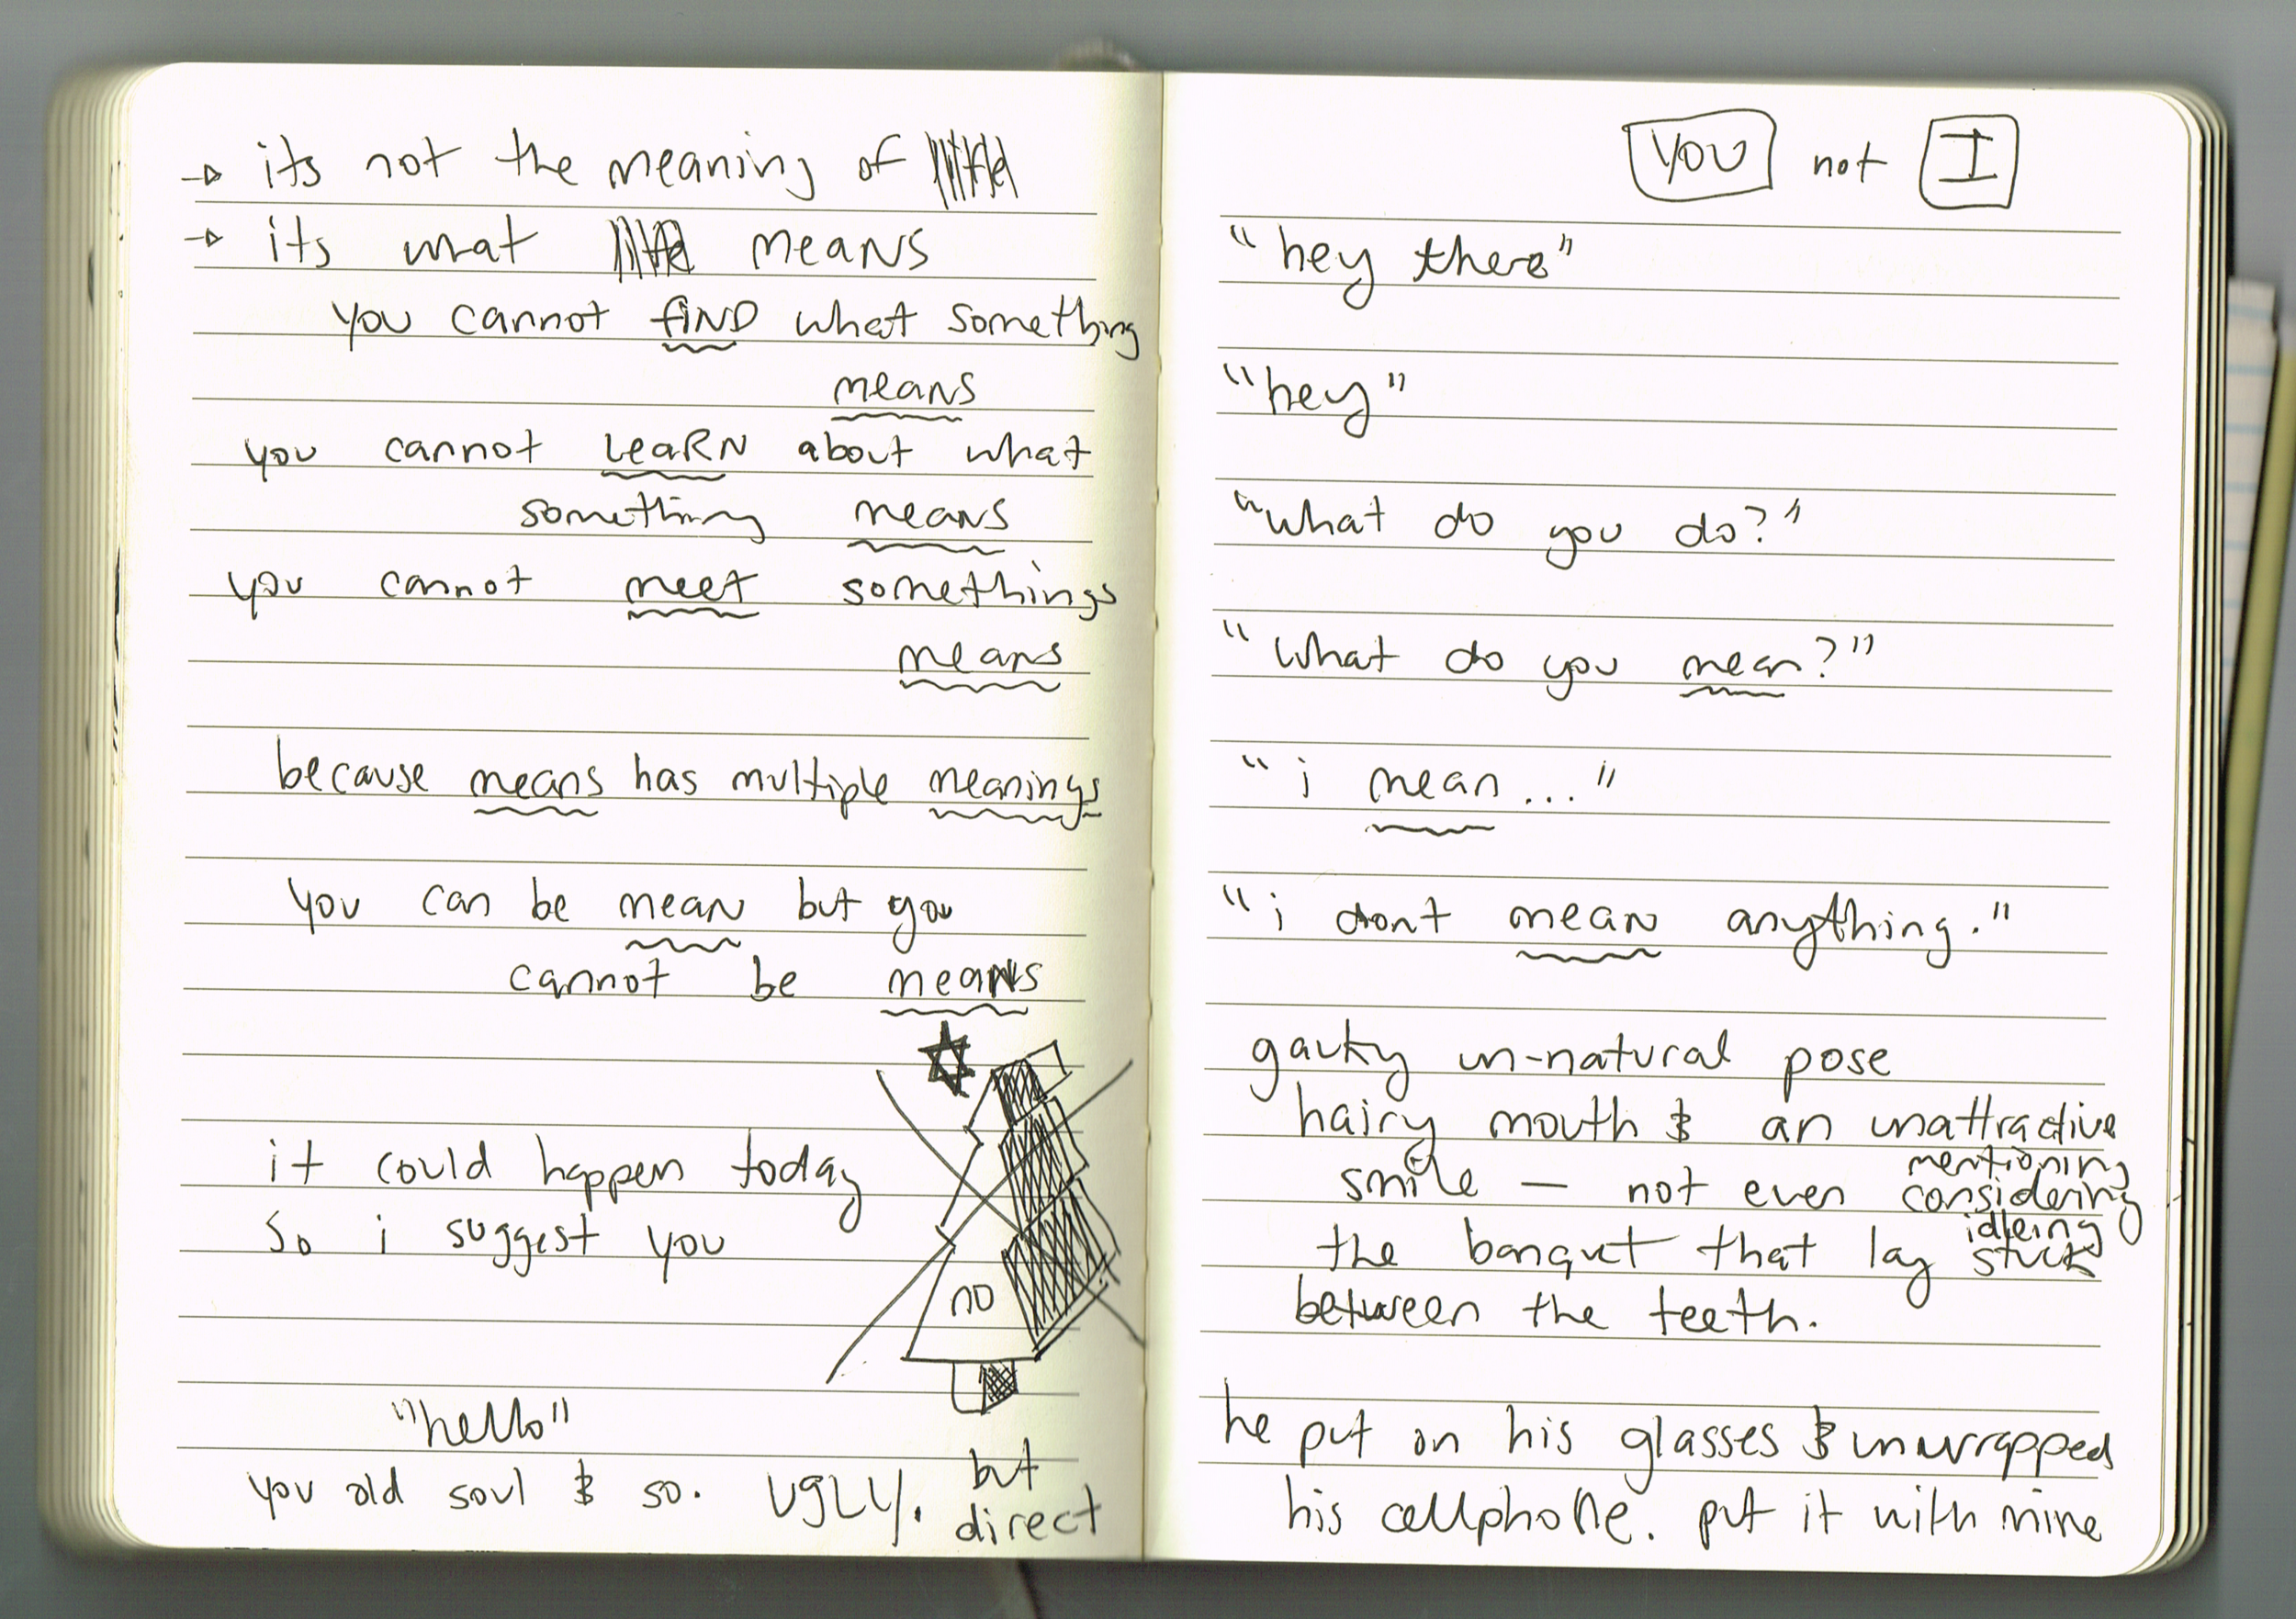 its not the meaning of
its what means
you cannot find what something
means
you cannot LeaRN about what
something means
you cannot meet somethings
means
because means has multiple meanings
you can be mean but you
cannot be means
it could happen today
so i suggest you
NO
"hello"
you old soul & so. UGLY. but
direct
YOU not I
"hey there"
"hey"
"what do you do?"
"what do you mean?"
"i mean..."
"i dont mean anything."
gauky un-natural pose
hairy mouth & an unattractive
mentioning
smile — not even considering
idleing
the banqut that lay stuck
between the teeth.
he put on his glasses & unwrapped
his cellphone. put it with mine